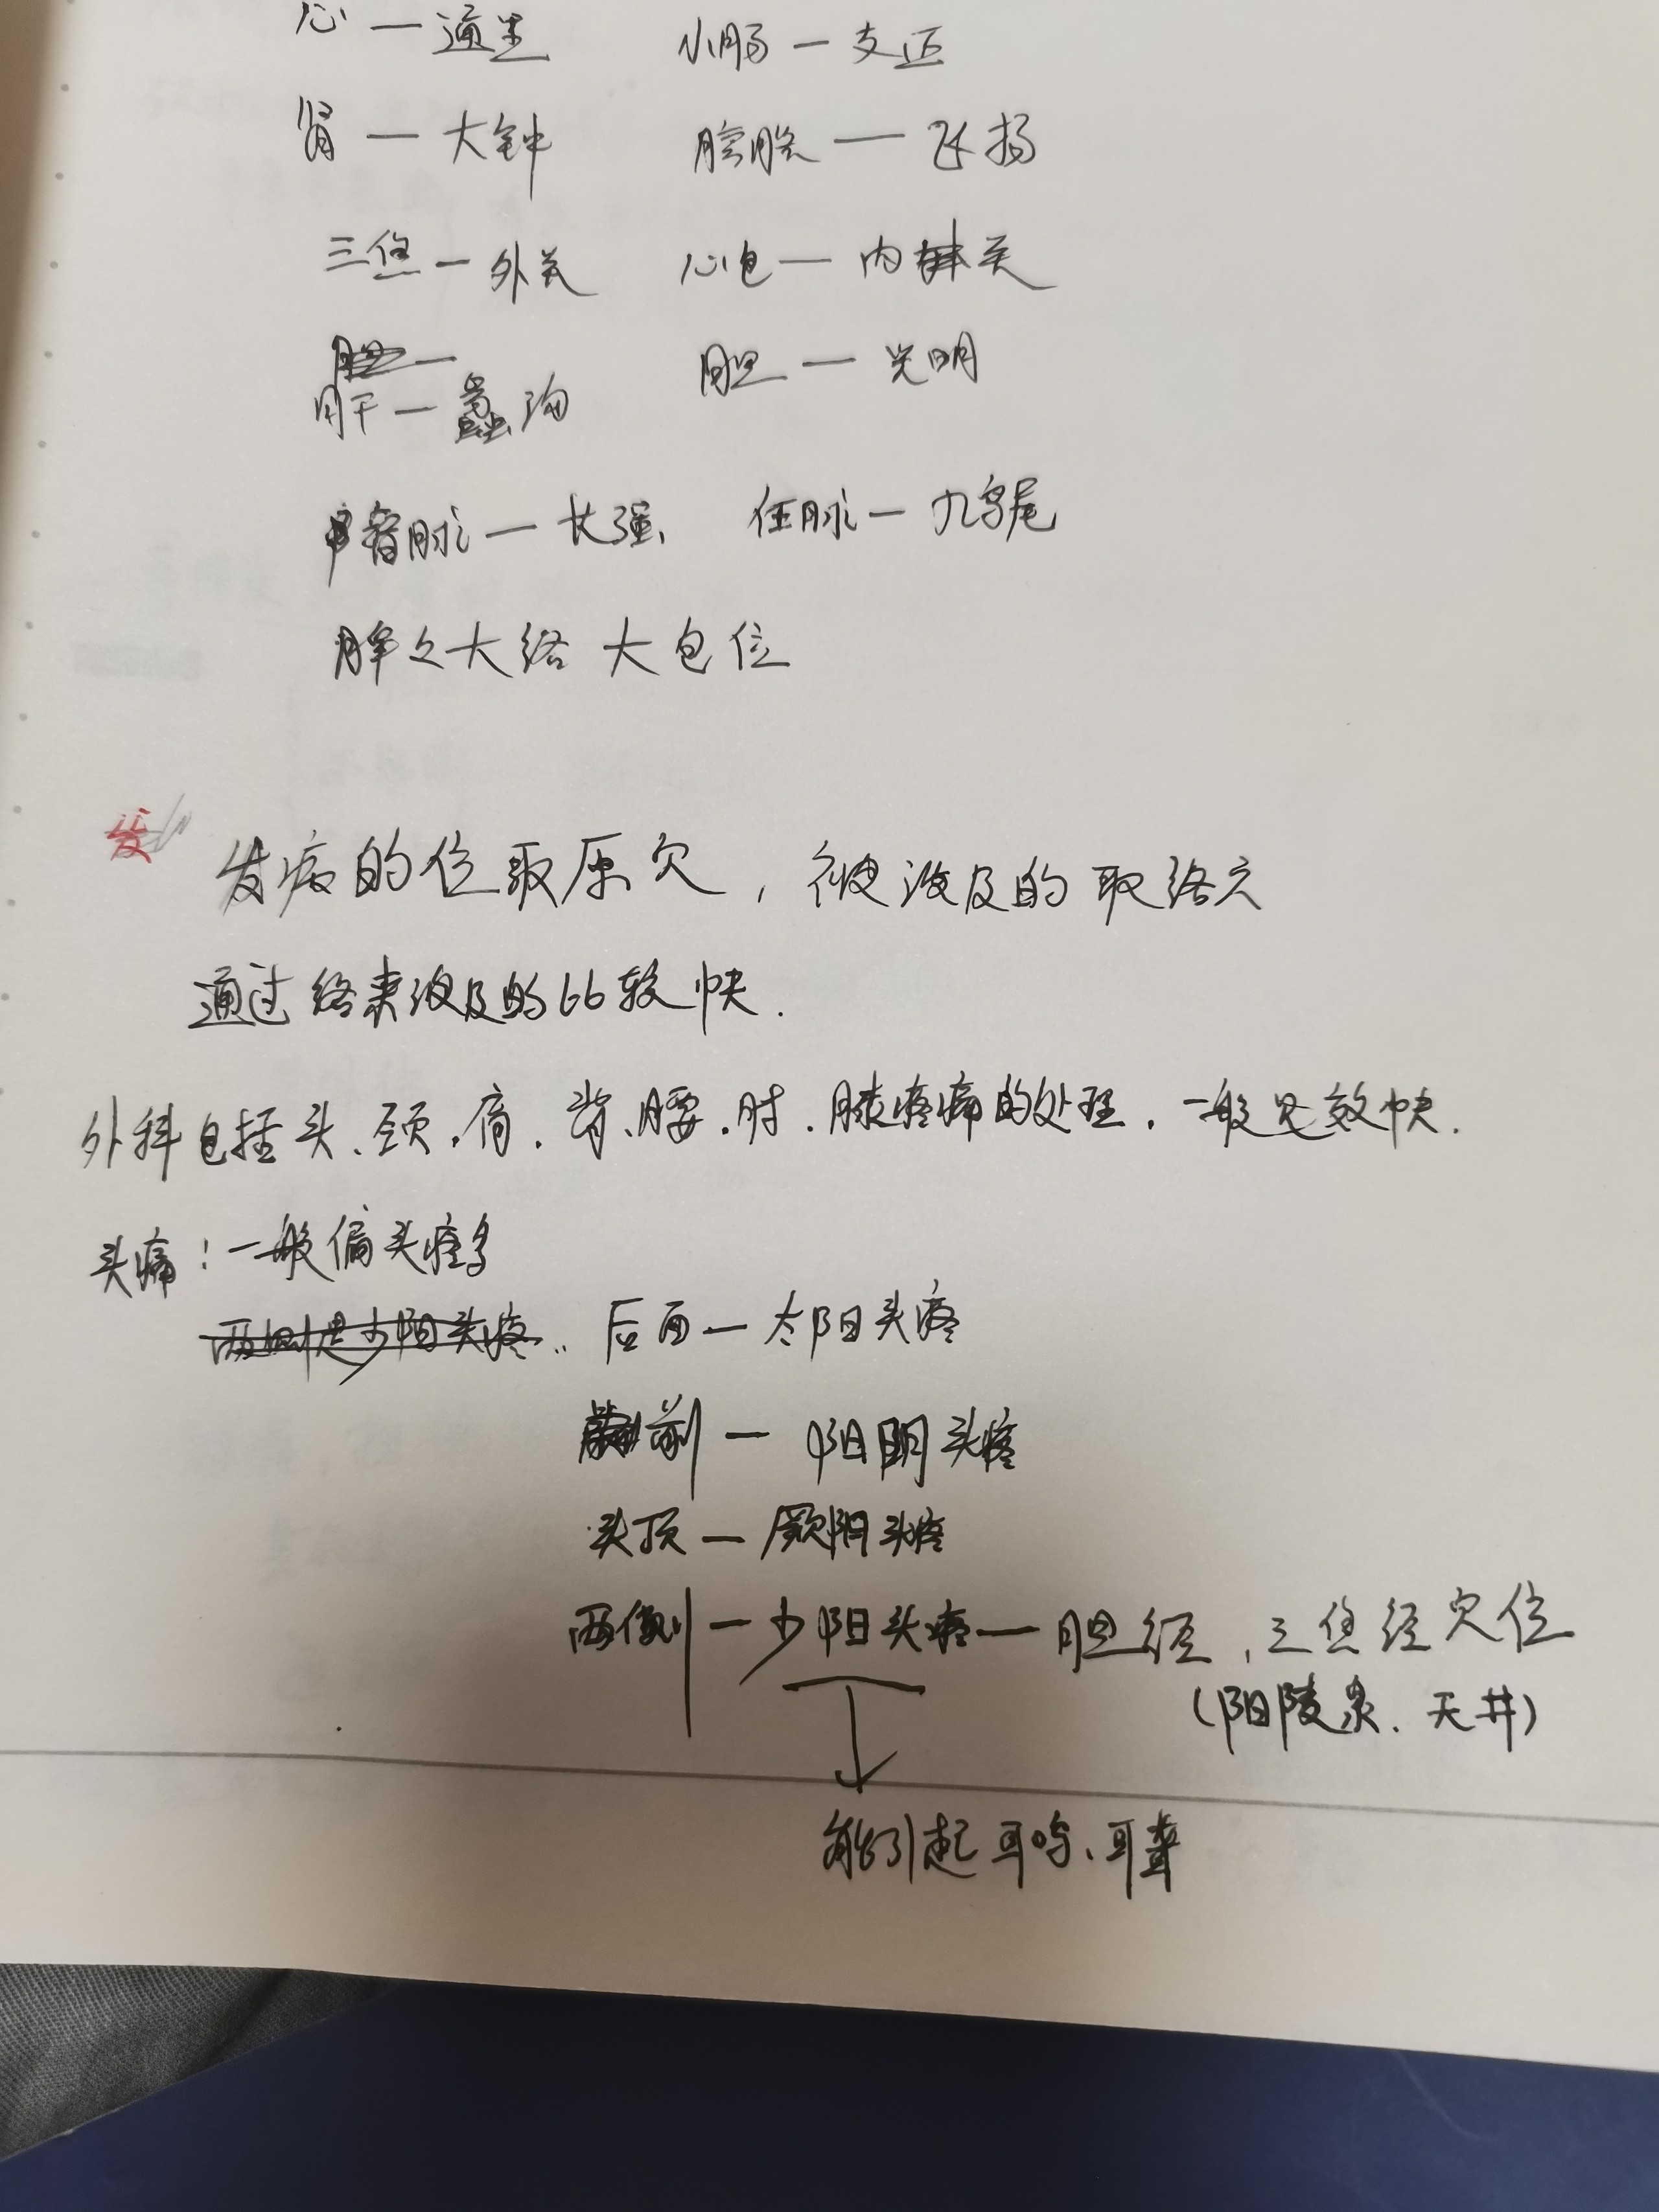 心 — 通里 小肠 — 支正
肾 — 大钟 膀胱 — 飞扬
三焦 — 外关 心包 — 内关
胆 — 光明
肝 — 蠡沟
督脉 — 长强 任脉 — 鸠尾
脾之大络 大包位
发
发病的位取原穴，被波及的取络穴
通过络来波及的比较快.
外科包括头、颈、肩、背、腰、肘、膝疼痛的处理.一般见效快.
头痛：一般偏头疼多
两侧是少阳头疼.. 后面 — 太阳头疼
前 — 阳明头疼
头顶 — 厥阴头疼
两侧 — 少阳头疼 — 胆经，三焦经穴位
(阳陵泉、天井)
能引起耳鸣、耳聋